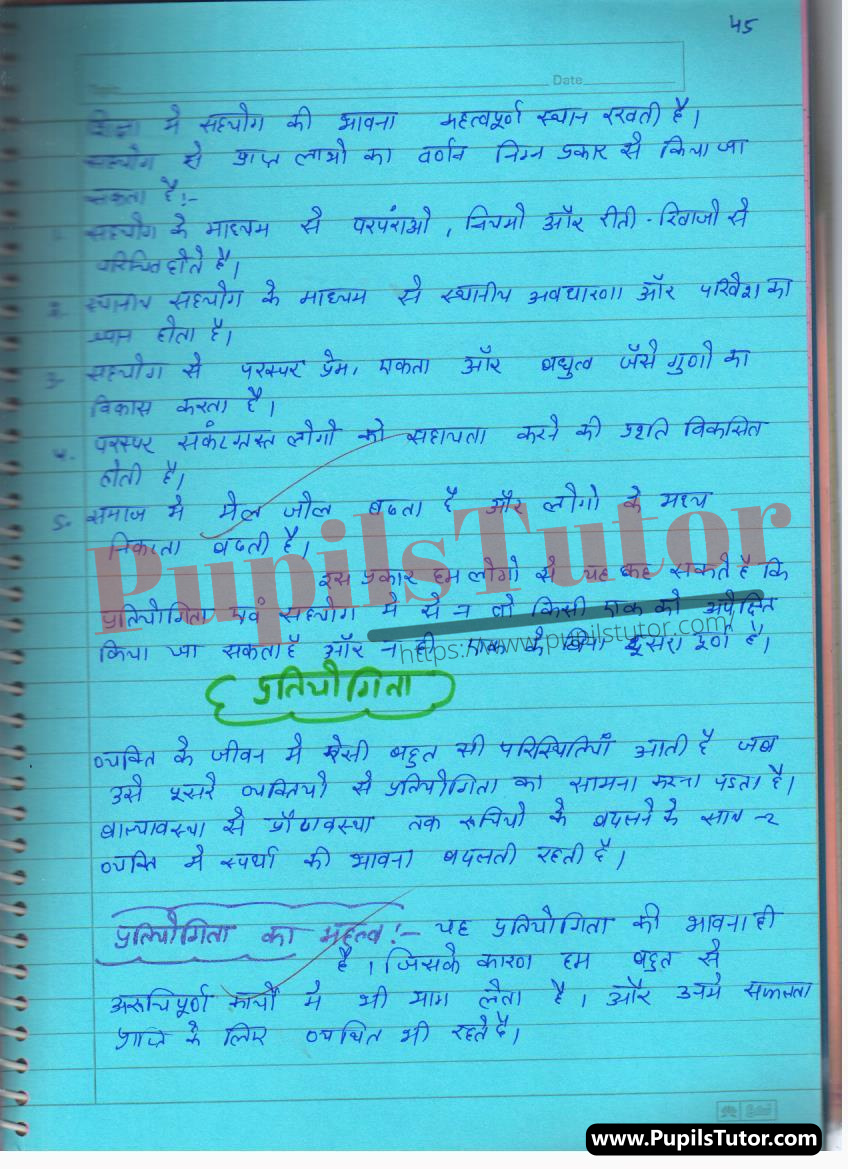 45
Date
शिक्षा मे सहयोग की भावना महत्वपूर्ण स्थान रखती है।
सहयोग से प्राप्त लाभो का वर्णन निम्न प्रकार से किया जा
सकता है:-
1. सहयोग के माध्यम से परपंराओ, नियमो और रीती-रिवाजो से
परिचित होते है।
2. स्थानीय सहयोग के माध्यम से स्थानीय अवधारणा और परिवेश का
ज्ञान होता है।
3. सहयोग से परस्पर प्रेम, एकता और बधुत्व जैसे गुणो का
विकास करता है।
4. परस्पर सकंटग्रस्त लोगो को सहायता करने की प्रवृति विकसित
होती है।
5. समाज मे मेल जोल बढता है और लोगो के मध्य
निकटता बढती है।
इस प्रकार हम लोगो से यह कह सकते है कि
प्रतियोगिता एवं सहयोग मे से न तो किसी एक को उपेक्षित
किया जा सकता है और न ही एक के बिना दूसरा पूर्ण है।
PupilsTutor
https://www.pupilstutor.com
प्रतियोगिता
व्यक्ति के जीवन मे ऐसी बहुत सी परिस्थितियाँ आती है जब
उसे दूसरे व्यक्तियो से प्रतियोगिता का सामना करना पडता है।
बाल्यावस्था से प्रौढावस्था तक रूचियो के बदलने के साथ-२
व्यक्ति मे स्पर्धा की भावना बदलती रहती है।
प्रतियोगिता का महत्व:- यह प्रतियोगिता की भावना ही
है। जिसके कारण हम बहुत से
अरूचिपूर्ण कार्यो मे भी भाग लेता है। और उनमे सफलता
प्राप्त के लिए व्यथित भी रहते है।
www.PupilsTutor.com